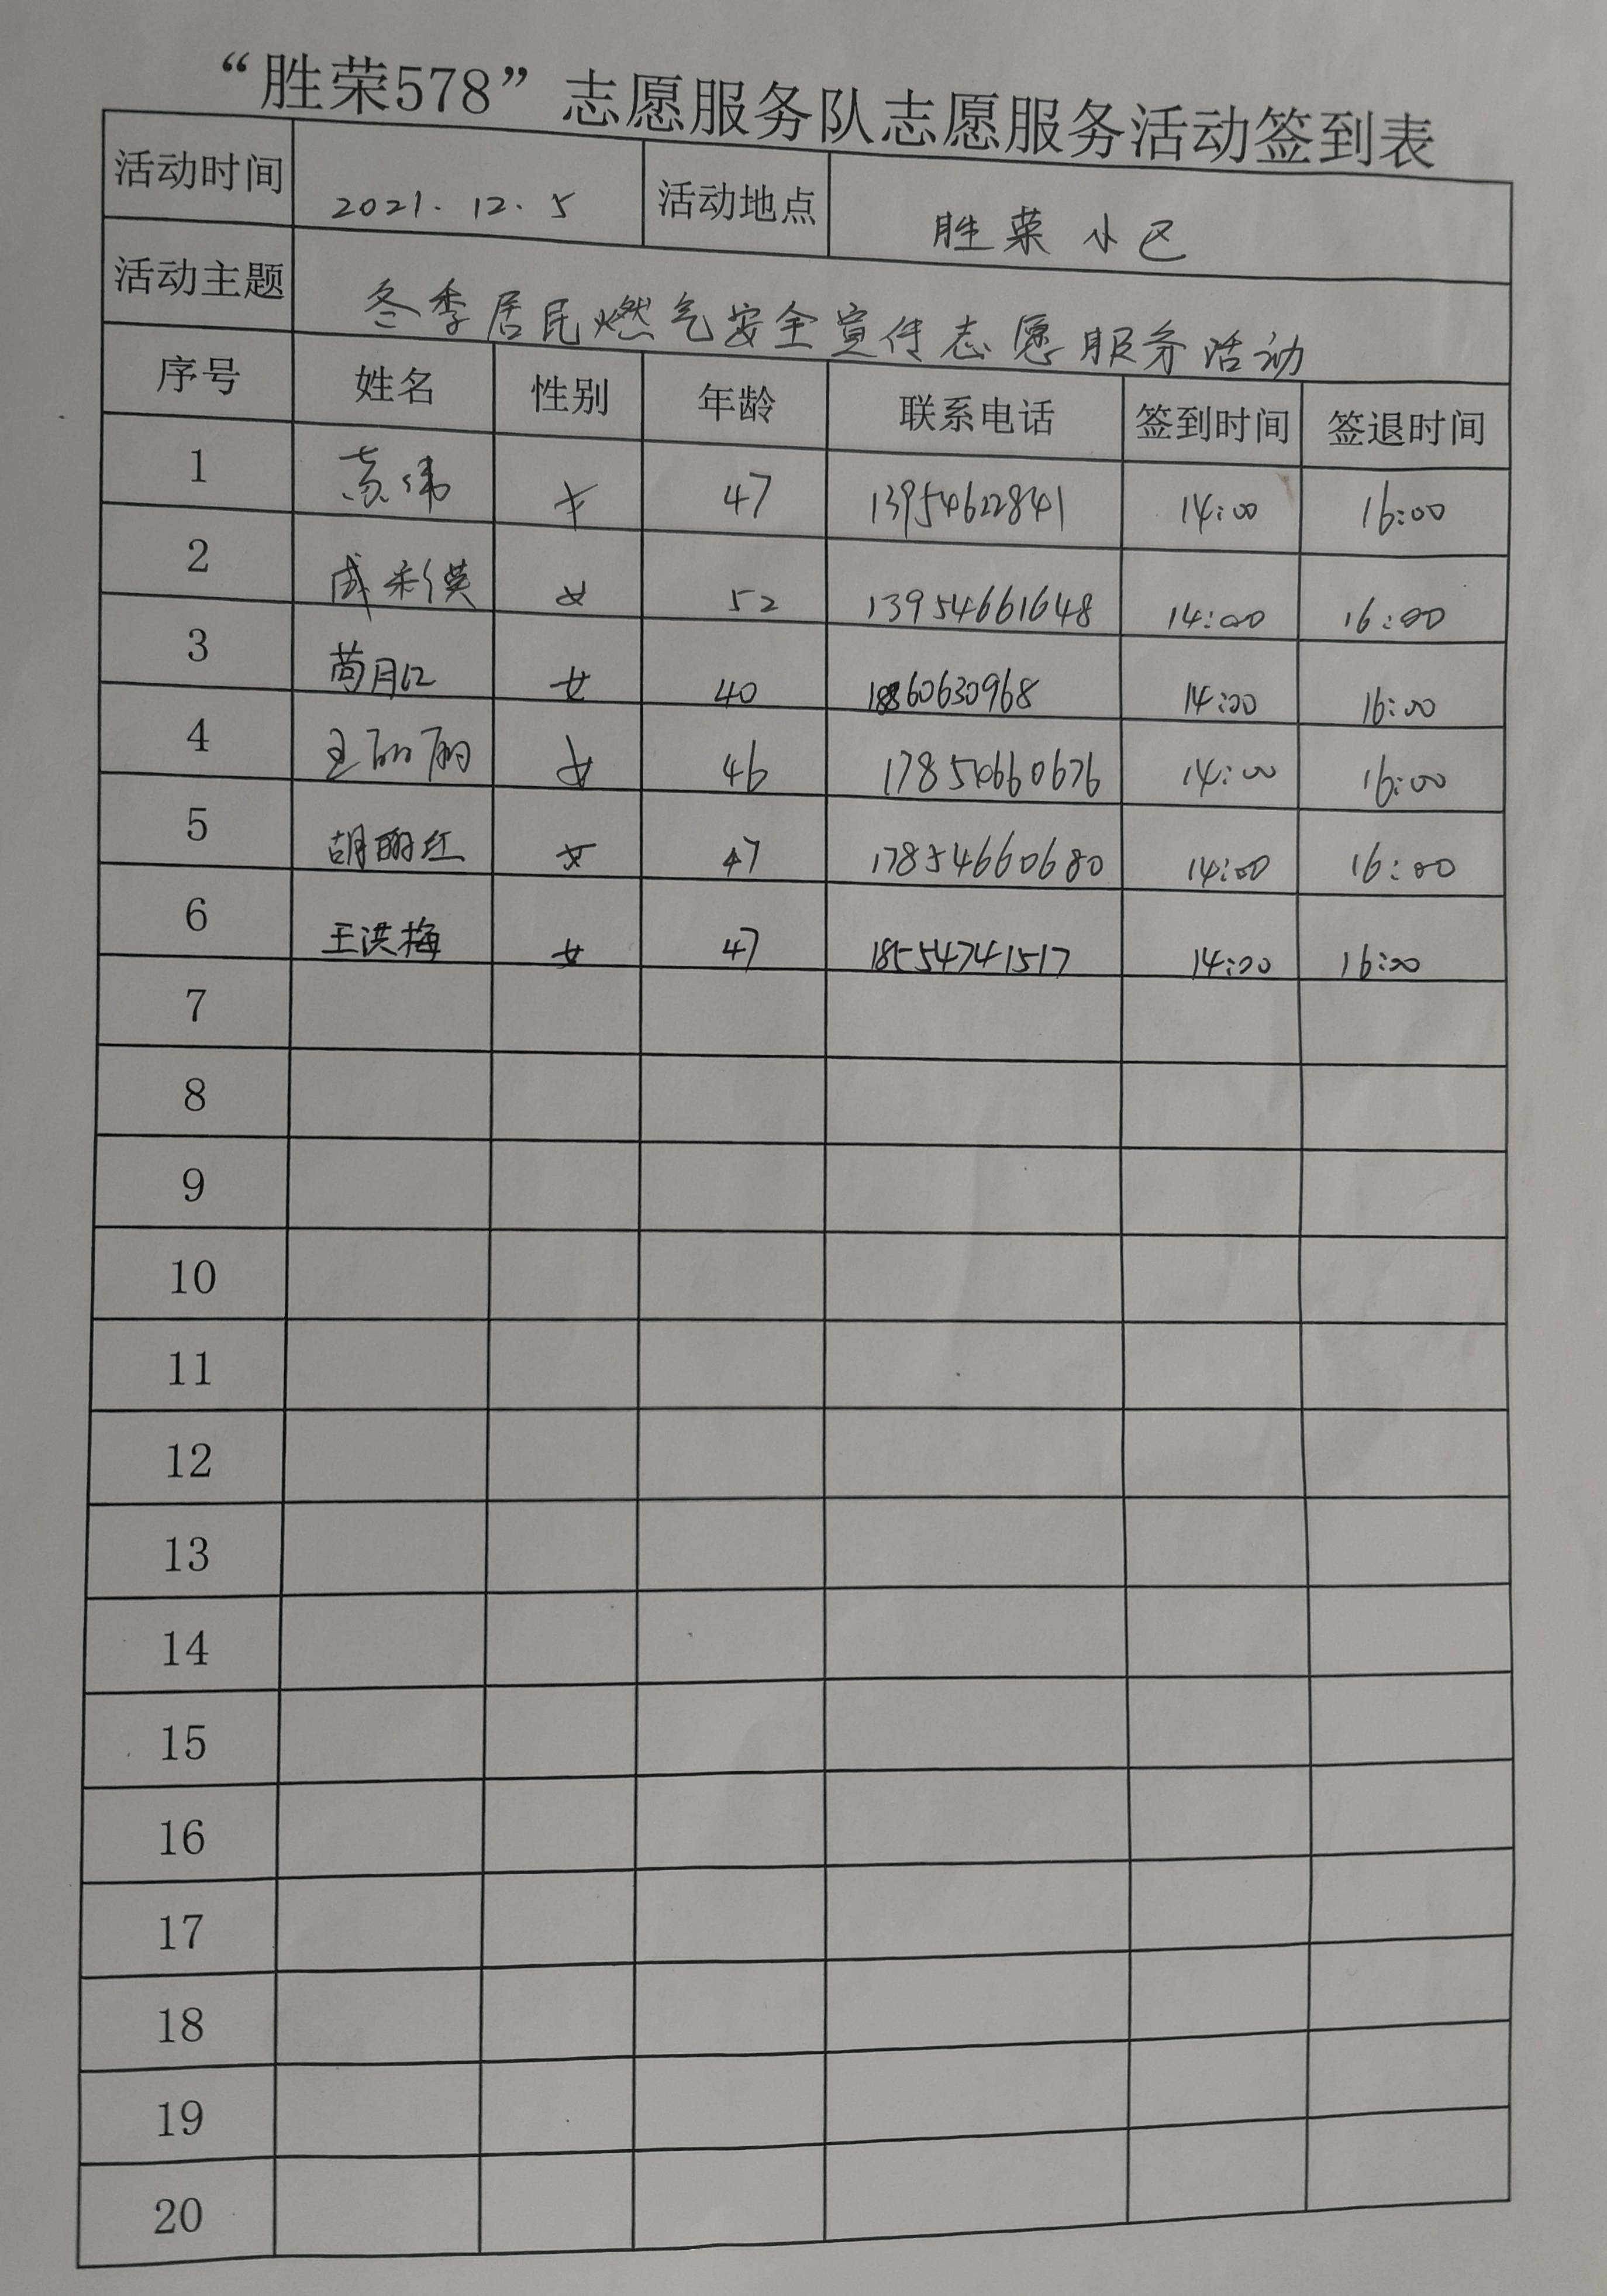 “胜荣578”志愿服务队志愿服务活动签到表
活动时间 2021.12.5 活动地点 胜荣小区
活动主题 冬季居民燃气安全宣传志愿服务活动
序号 姓名 性别 年龄 联系电话 签到时间 签退时间
1 女 47 13954622841 14:00 16:00
2 女 52 13954661648 14:00 16:00
3 女 40 18860630968 14:00 16:00
4 王丽丽 女 46 17850660676 14:00 16:00
5 胡丽红 女 47 17854660680 14:00 16:00
6 王洪梅 女 47 18554741517 14:00 16:00
7
8
9
10
11
12
13
14
15
16
17
18
19
20